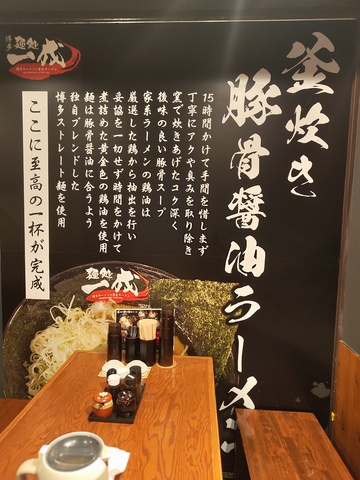 博多
麺処
一成
釜炊き
豚骨醤油ラーメン
15時間かけて手間を惜しまず
丁寧にアクや臭みを取り除き
窯で炊きあげたコク深く
後味の良い豚骨スープ
家系ラーメンの鶏油は
厳選した鶏から抽出を行い
妥協を一切せず時間をかけて
煮詰めた黄金色の鶏油を使用
麺は豚骨醤油に合うよう
独自ブレンドした
博多ストレート麺を使用
ここに至高の一杯が完成
麺処
一成